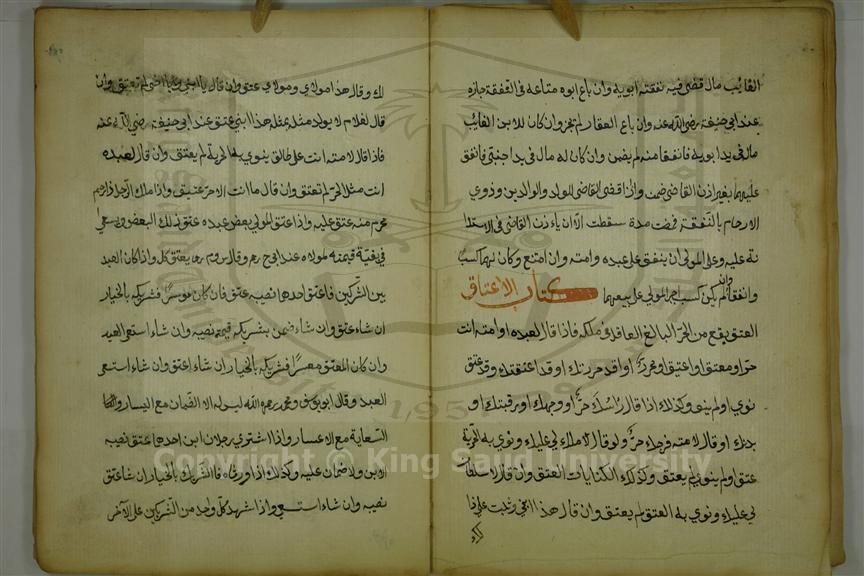 الغايب مال قضى فيه بنفقة ابويه وان باع ابوه متاعه فى النفقة جاز
عند ابى حنيفة رضى الله عنه وان باع العقار لم يجز وان كان للابن الغايب
مال فى يد ابويه فانفقا منه لم يضمن وان كان له مال فى يد اجنبى فانفق
عليهما بغير اذن القاضى ضمن واذا قضى القاضى للولد والوالدين وذوي
الارحام بالنفقة فمضت مدة سقطت الا ان ياذن القاضى فى الاستدا
نة عليه وعلى المولى ان ينفق على عبده وامته وان امتنع وكان لهما كسب
وانفقا وان لم يكن كسب اجبر المولى على بيعهما كتاب الاعتاق
العتق يقع من الحر البالغ العاقل فى ملكه فاذا قال لعبده او امته انت
حر او معتق او عتيق او محرر او قد حررتك او قد اعتقتك وقد عتق
نوي او لم ينو وكذلك اذا قال راسك حر او وجهك او رقبتك او
بدنك او قال لامته فرجك حر ولو قال لا ملك لي عليك ونوي به الحرية
عتق وان لم ينو لم يعتق وكذلك الكنايات العتق وان قال لا سلطان
لي عليك ونوي به العتق لم يعتق وان قال هذا ابنى وثبت على ذا
لك وقال هذا مولاي ومولاي عتق وان قال يا ابنى ويا اخى لم تعتق وان
قال لغلام لا يولد مثله بمثل هذا ابنى عتق عند ابى حنيفة رضى الله عنه
فاذا قال لامته انت على طالق ينوي به الحرية لم يعتق وان قال لعبده
انت مثل الحر لم تعتق وان قال ما انت الا حر عتيق واذا ملك الرجل ذا رحم
محرم منه عتق عليه واذا اعتق المولى بعض عبده عتق ذلك البعض ويسعى
فى بقية قيمته لمولاه عند ابى ح وقال يعتق كل واذا كان العبد
بين الشركين فاعتق احدهما نصيبه عتق فان كان موسرا فشريكه بالخيار
ان شاء عتق وان شاء ضمن بشريكه قيمة نصيبه وان شاء استسعى العبد
وان كان المعتق معسرا فشريكه بالخيار ان شاء اعتق وان شاء استسعى
العبد وقال ابو يوسف ومحمد رحمه الله ليس له الا الضمان مع اليسار
السعاية مع الاعسار واذا اشترى رجلان ابن احدهما عتق نصيبه
الابن ولا ضمان عليه وكذلك اذا ورثاه فالشريك بالخيار ان شا عتق
نصيبه وان شاء استسعى واذا شهد كل واحد من الشريكين على الآخر
Copyright © King Saud University